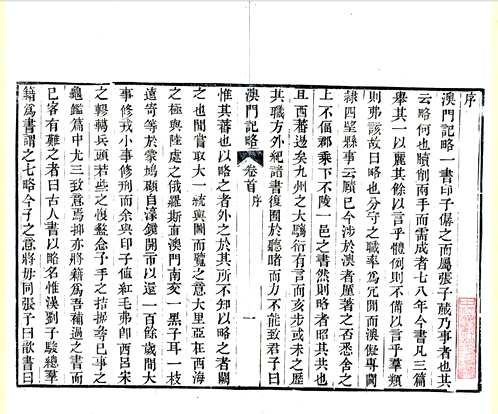 序
澳門記略一書印子僝之而屬張子蕆乃事者也其
云略何也牘削兩手而甫成者七八年今書凡三篇
舉其一以麗其餘以言乎體倒則不備以言乎羣類
則弗該故曰略也分守之職率爲冗閒澳儗專閫
隸四望縣事云牘已今涉於澳者屋著之否悉舍之
上不偪郡乘下不陵一邑之書然則略者昭其共也
且西蕃邊矣九州之大騶衍有言而亥步或未之歷
其職方外紀諸書復囿於聽睹而力不能致君子曰
澳門記略 卷首 序 一
惟其蕃也以略之者外之於其所不知以略之者闕
之也間嘗取大一統輿圖而覽之意大里亞在西海
之極與陸處之俄羅斯直澳門南交一黑子耳一枝
遠寄等於蒙鳩顧自濠鏡開市以還一百餘歲間大
事修戎小事修刑而余與印子值紅毛弗郎西呂宋
之轇轕兵頭若些之愎盩盒子手之拮据等已事之
龜鑑篇中尤三致意焉抑亦將藉爲吾補過之書而
已客有難之者曰古人書以略名惟漢劉子駿總羣
籍爲書謂之七略今子之意將毋同張子曰歆書曰